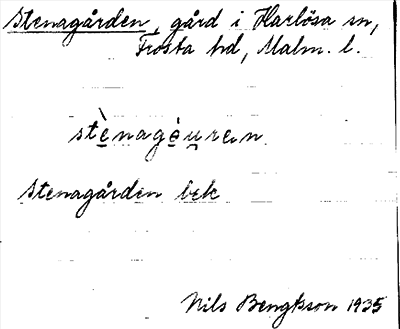 Stenagården, gård i Harlösa sn,
Frosta hd, Malm. l.
stè̲nagè̲u̲ren
Stenagården bek
Nils Bengtsson 1935